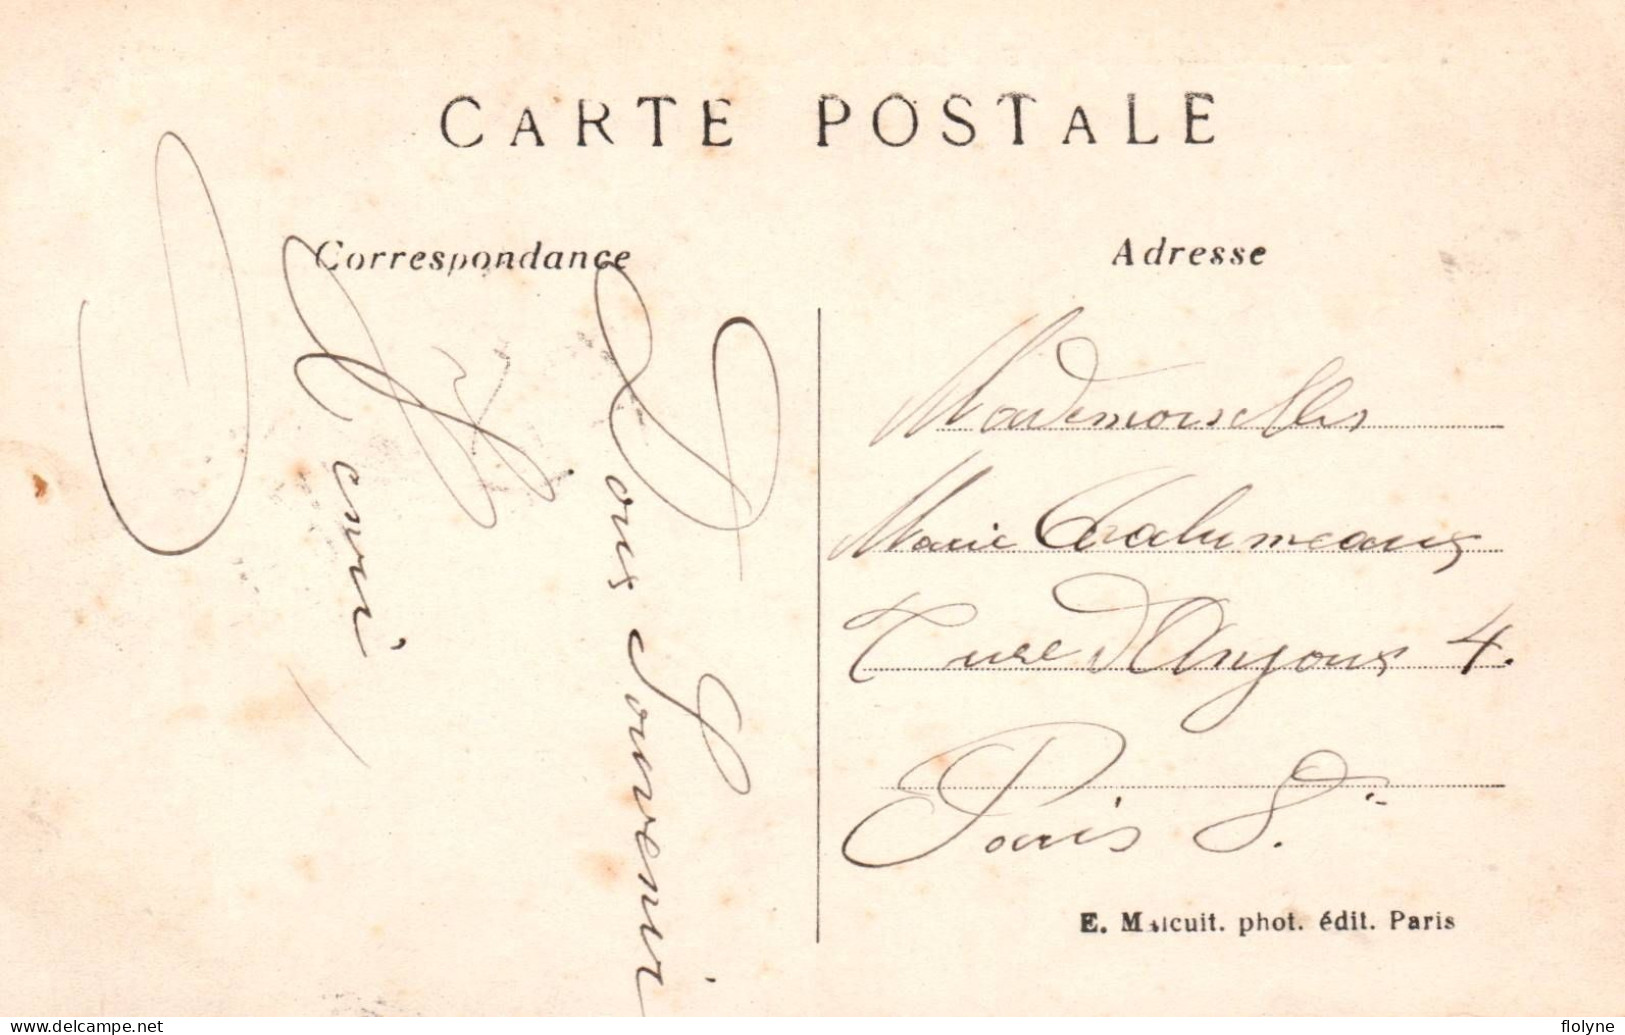 CARTE POSTALE
Correspondance
Dous Souvenir
Henri
Adresse
Mademoiselles
Marie Chalumeaux
ruse d'Anjous 4.
Paris 8.
E. Malcuit. phot. édit. Paris
www.delcampe.net
flolyne